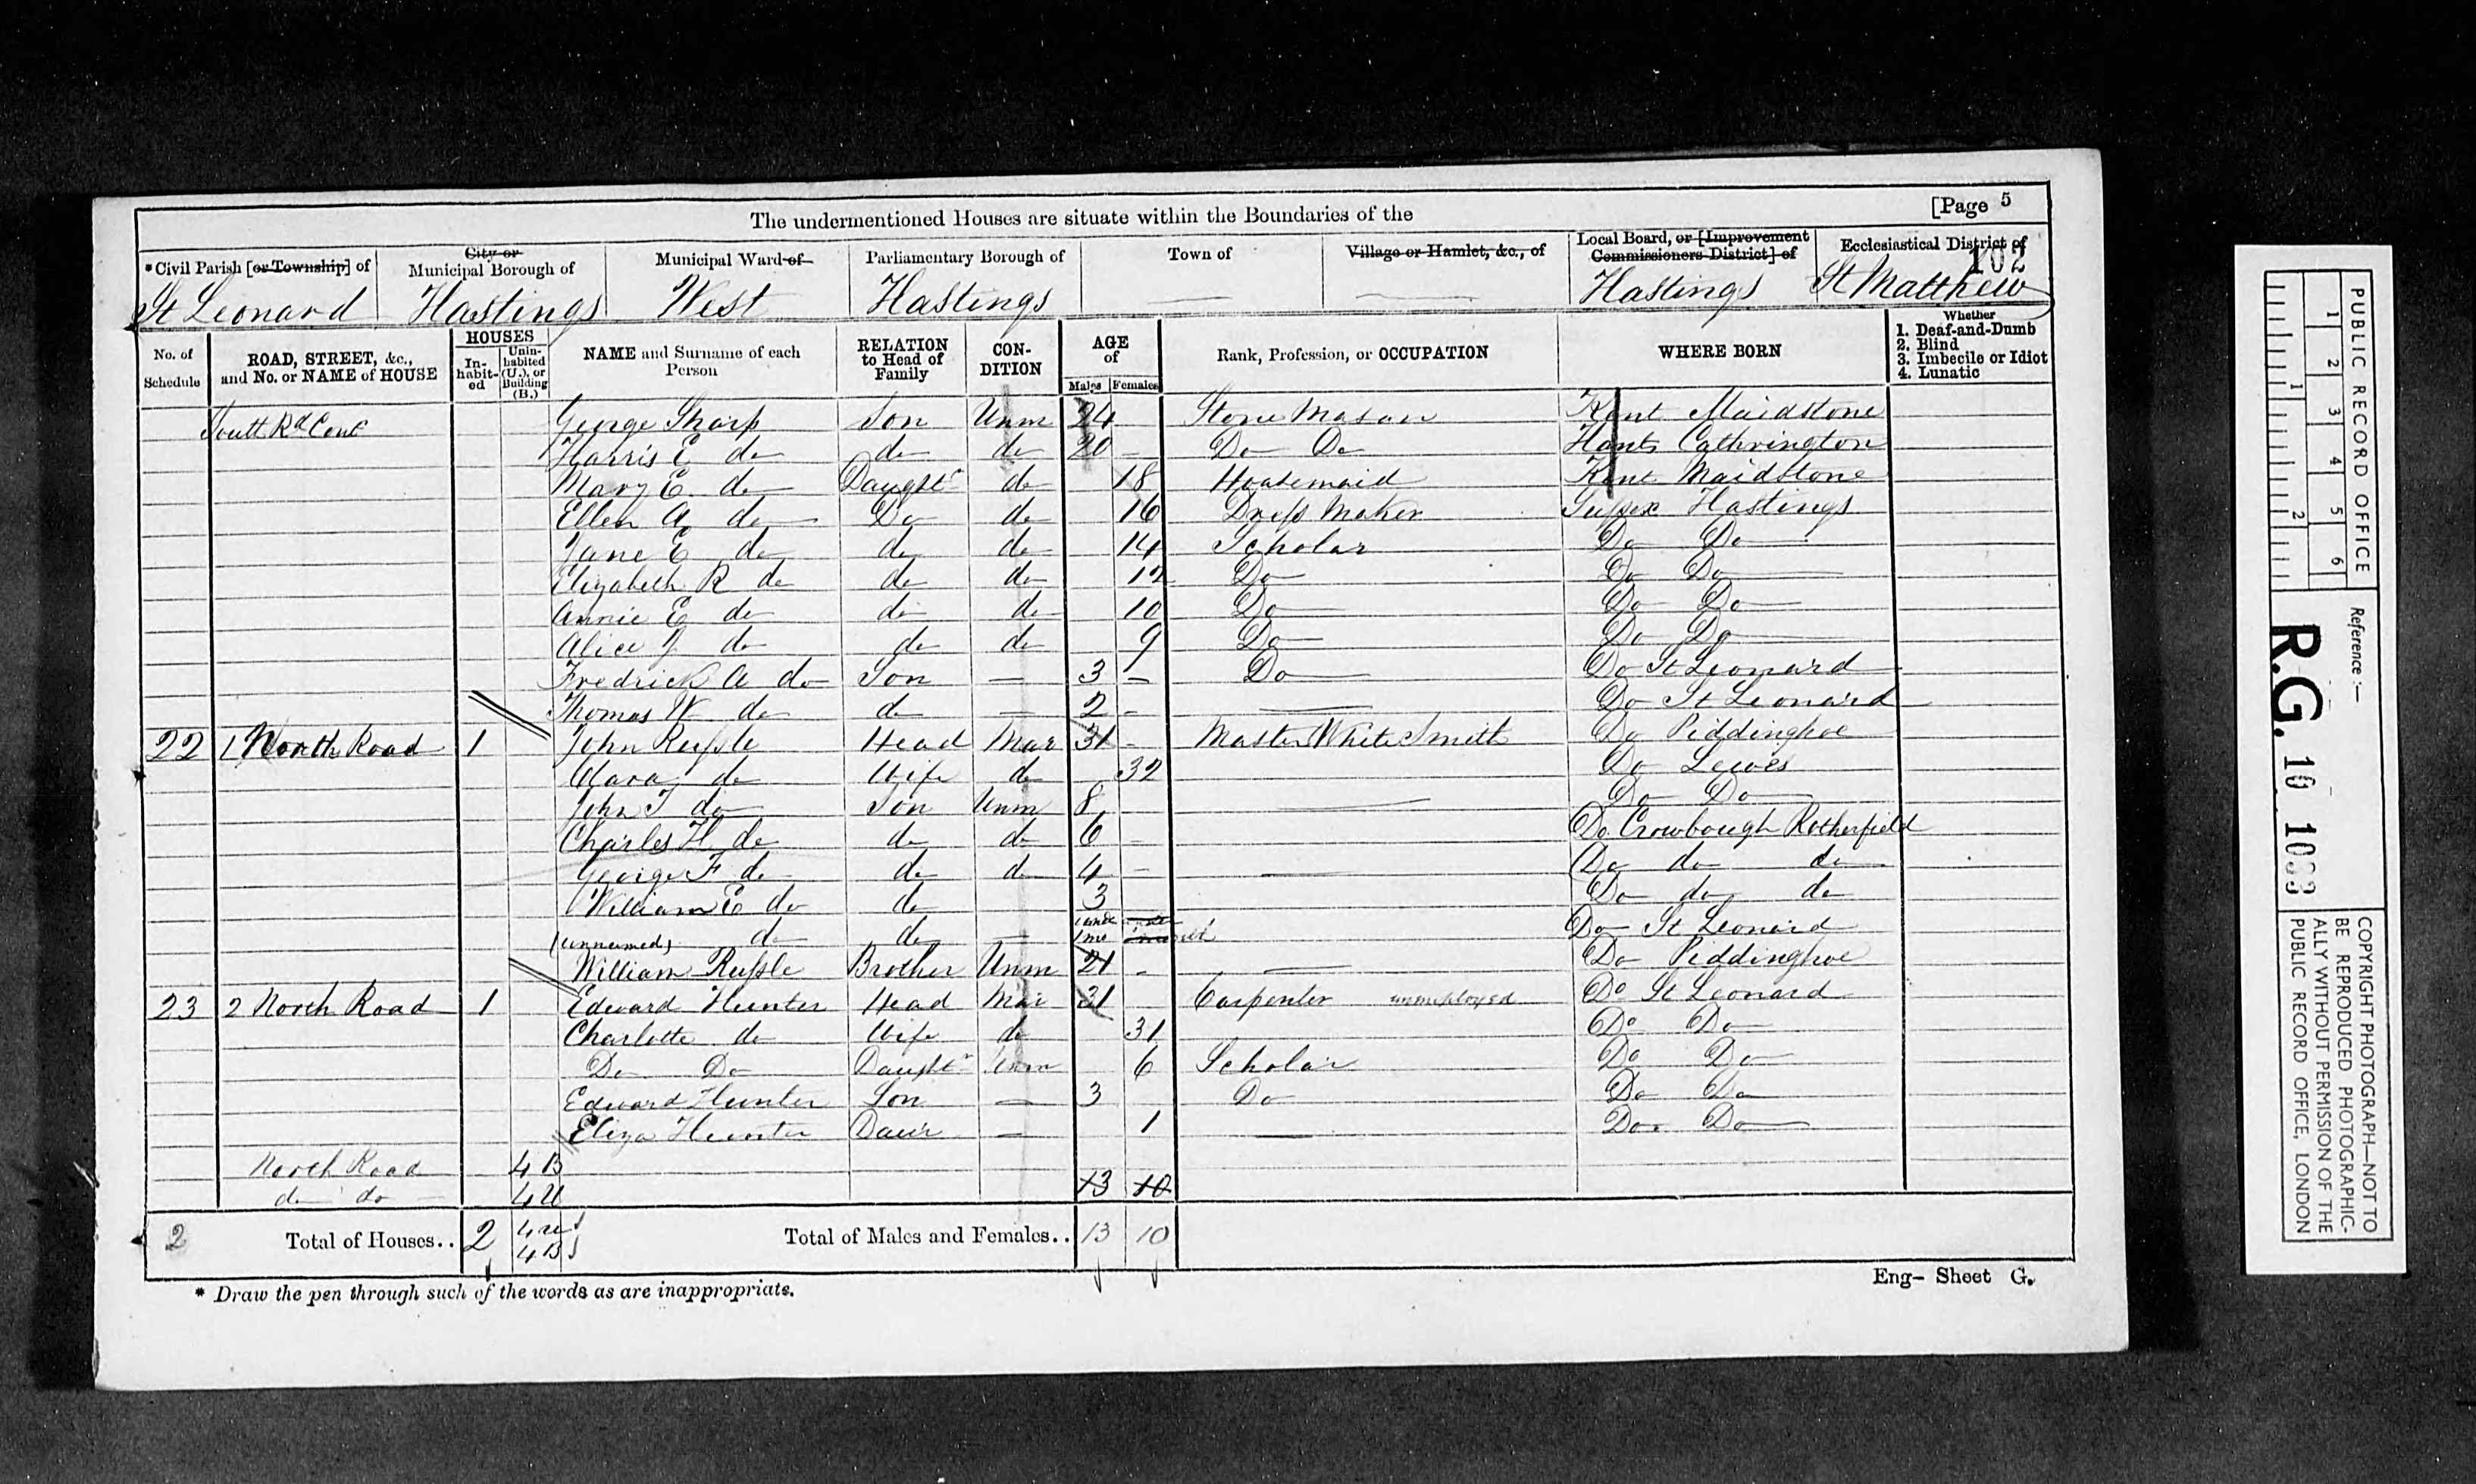 The undermentioned Houses are situate within the Boundaries of the [Page 5
*Civil Parish [or Township] of City or Municipal Borough of Municipal Ward of Parliamentary Borough of Town of Village or Hamlet, &c., of Local Board, or [Improvement Commissioners District] of Ecclesiastical District of
102
St Leonard Hastings West Hastings Hastings St Matthew
No. of Schedule ROAD, STREET, &c., and No. or NAME of HOUSE HOUSES Inhabited Uninhabited (U.), or Building (B.) NAME and Surname of each Person RELATION to Head of Family CONDITION AGE of Males Females Rank, Profession, or OCCUPATION WHERE BORN Whether 1. Deaf-and-Dumb 2. Blind 3. Imbecile or Idiot 4. Lunatic
South Rd Cont George Sharp Son Unm 24 Stone Mason Kent Maidstone
Harris E do do do 20 Do Do Hants Cathrington
Mary E do Daughtr do 18 Housemaid Kent Maidstone
Ellen A do Do do 16 Dress Maker Sussex Hastings
Jane E do do do 14 Scholar Do Do
Elizabeth R do do do 12 Do Do Do
Annie E do do do 10 Do Do Do
Alice J do do do 9 Do Do Do
Fredrick A do Son — 3 Do Do St Leonard
Thomas W do do — 2 Do St Leonard
22 1 North Road 1 John Russle Head Mar 31 Master White Smith Do Piddinghoe
Clara do Wife do 32 Do Lewes
John T do Son Unm 8 Do Do
Charles H do do do 6 Do Crowbough Rotherfield
George F do do do 4 Do do do
William E do do 3 Do do do
(unnamed) do do — Do St Leonard
William Russle Brother Unm 21 Do Piddinghoe
23 2 North Road 1 Edward Hunter Head Mar 31 Carpenter unemployed Do St Leonard
Charlotte do Wife do 31 Do Do
Do Do Daughtr Unm 6 Scholar Do Do
Edward Hunter Son — 3 Do Do Do
Eliza Hunter Daur — 1 Do Do
North Road 4 B
do do 4 U 13 10
2 Total of Houses.. 2 4 U 4 B Total of Males and Females.. 13 10
* Draw the pen through such of the words as are inappropriate.
Eng- Sheet G.
PUBLIC RECORD OFFICE
1 2 3 4 5 6
1 2
Reference :—
R.G. 10 1033
COPYRIGHT PHOTOGRAPH—NOT TO
BE REPRODUCED PHOTOGRAPHIC-
ALLY WITHOUT PERMISSION OF THE
PUBLIC RECORD OFFICE, LONDON